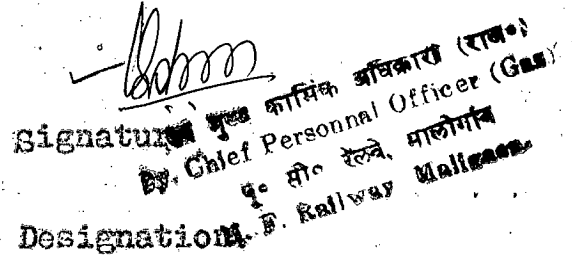 Signature
मुख्य कार्मिक अधिकारी (राज०)
Dy. Chief Personnal Officer (Gas)
पू० सी० रेलवे, मालीगांव
N. F. Railway Maligaon.
Designation